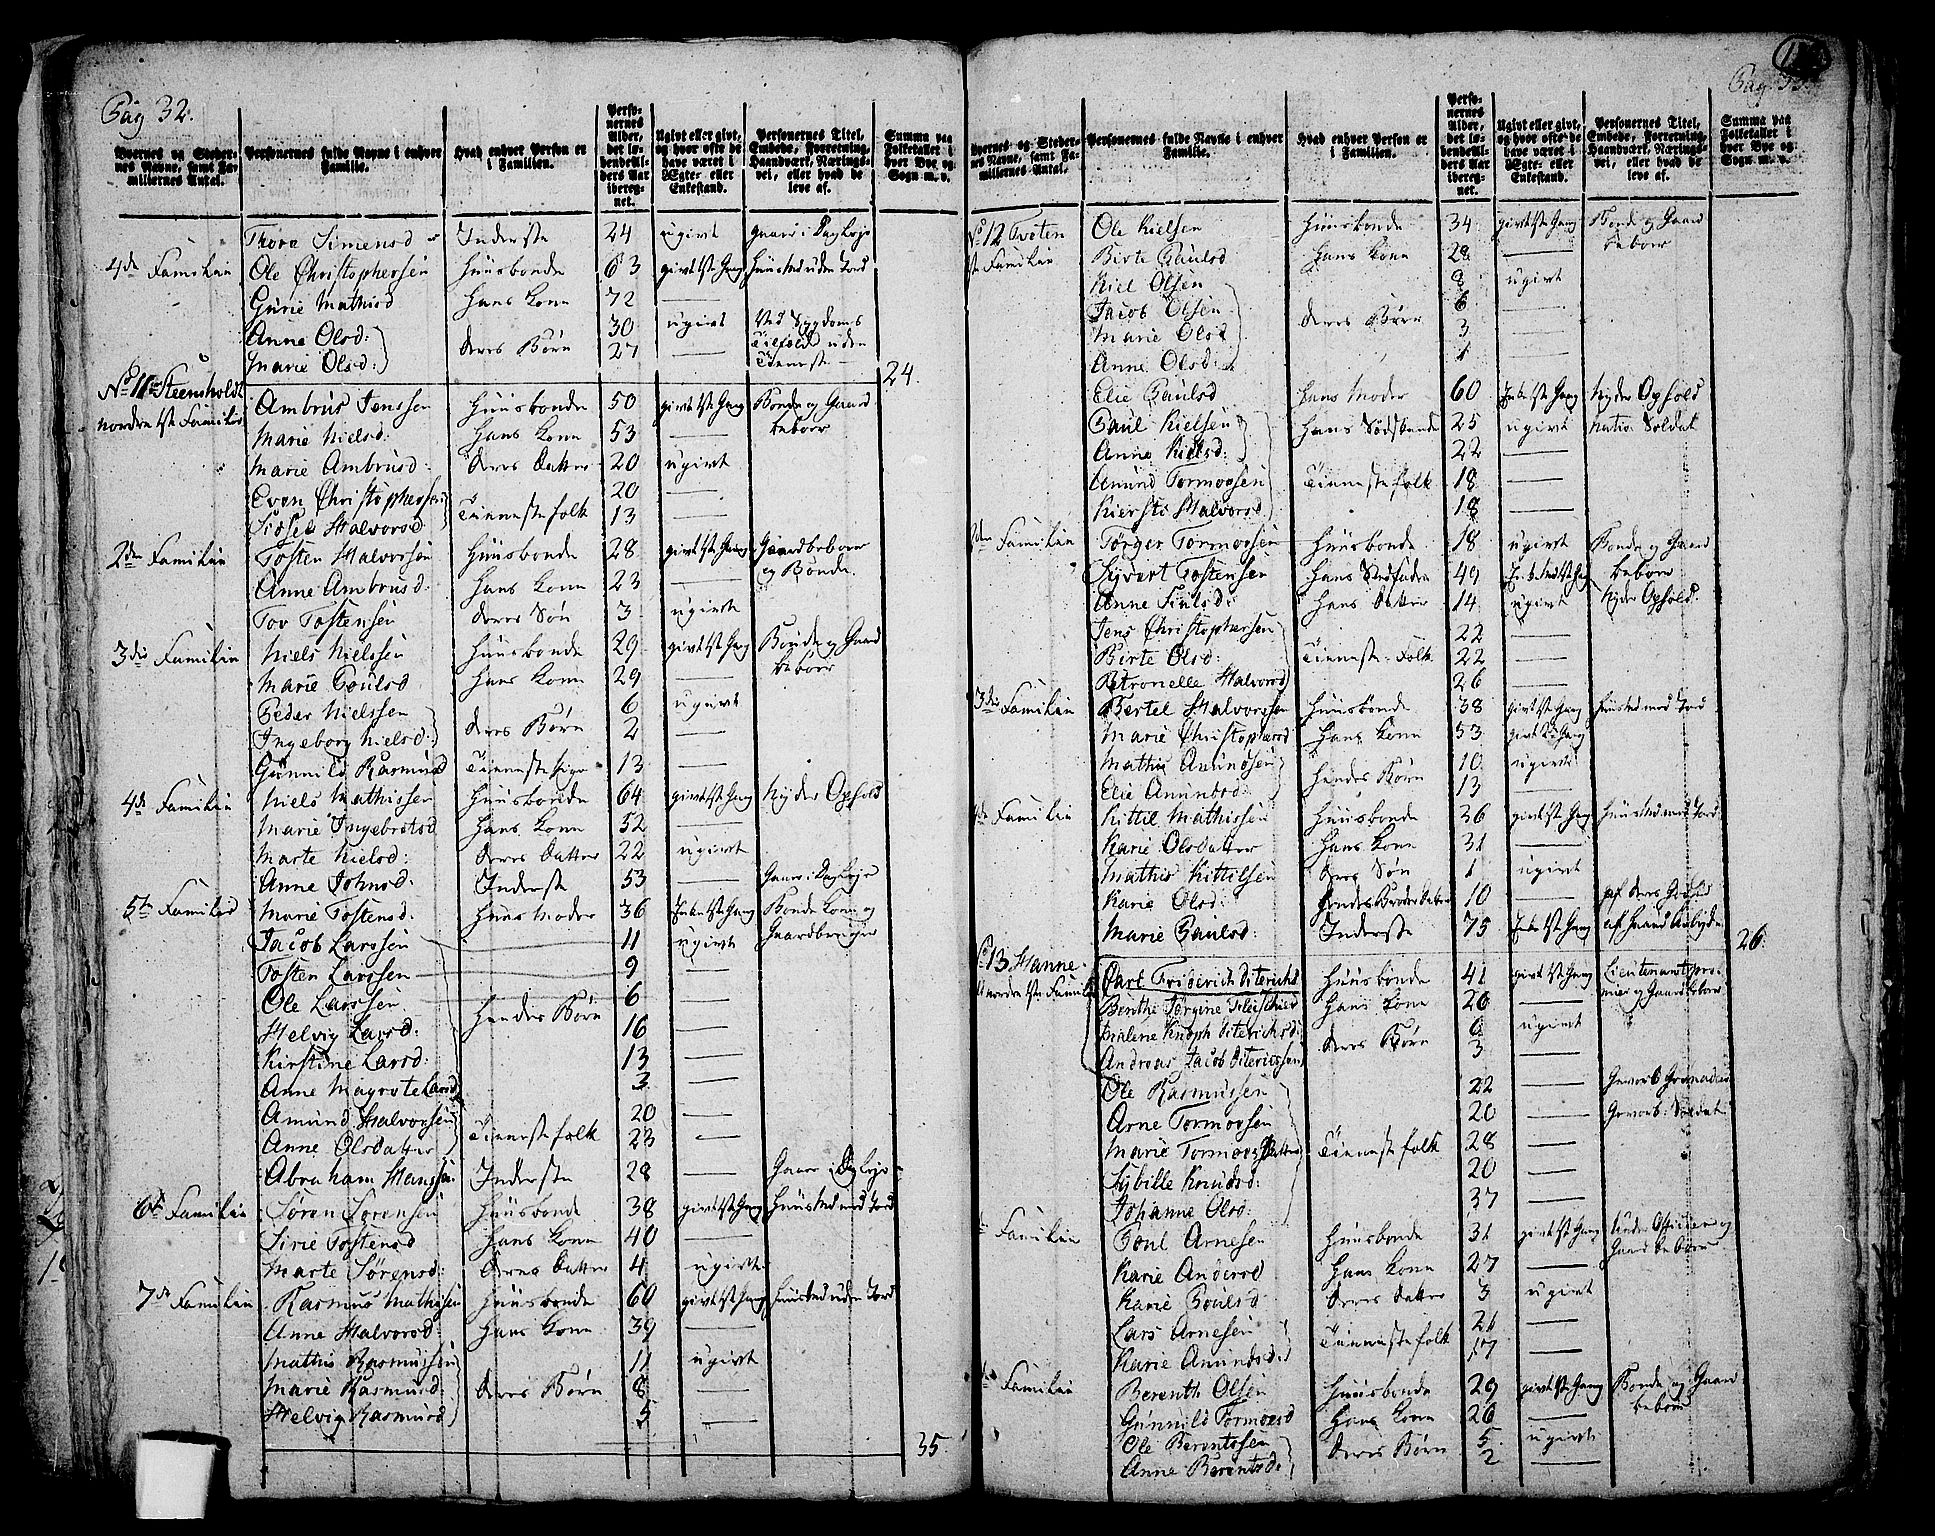 Pag 32.
Byernes og Stedernes Navne, samt Familiernes Antal.
Personernes fulde Navne i enhver Familie.
Hvad enhver Person er i Familien.
Personernes Alder, det løbende Alders Aar iberegnet.
Ugivt eller givt, og hvor ofte de have været i Ægte- eller Enkestand.
Personernes Titel, Embede, Forretning, Haandværk, Næringsvei, eller hvad de leve af.
Summa paa Folketallet i hver Bye og Sogn m. v.
Thore Simensd Inderste 24 ugivt gaaer i Dagleje
4de Familie Ole Christophersen Huusbonde 63 givt 1st Gang Huusted uden Jord
Gurie Mathisd Hans Kone 72 —
Anne Olsd: 30 ugivt Ved Sygdoms
Marie Olsd: deres Børn 27 — Tilfeld uden Tieneste
24.
No 11te Steensholdt
nordre 1st Familie Ambrus Jenssen Huusbonde 50 givt 1st Gang Bonde og Gaard beboer
Marie Nielsd: Hans Kone 53 —
Marie Ambrusd: deres Datter 20 ugivt
Even Christophersen 20 —
Sissel Halvorsd Tienestefolk 13 —
2den Familie Tosten Halvorsen Huusbonde 28 givt 1st Gang Gaardbeboer og Bonde
Anne Ambrusd: Hans Kone 23 —
Tov Tostensen deres Søn 3 ugivt
3die Familie Niels Nielssen Huusbonde 29 givt 1st Gang Bonde og Gaard beboer
Marie Poulsd Hans Kone 29 —
Peder Nielssen 6 ugivt
Ingeborg Nielsd: deres Børn 2 —
Gunnild Rasmusd Tieneste Pige 13 —
4de Familie Niels Mathissen Huusbonde 64 givt 1st Gang Nyder Ophold
Marie Ingebretsd Hans Kone 52 —
Marte Nielsd: deres Datter 22 ugivt
Anne Johnsd: Inderste 53 Gaaer i Dagleje
5te Familie Marie Tostensd: Huus Moder 36 Enke 1st Gang Bonde Kone og Gaardbruger
Jacob Larssen 11 ugivt
Tosten Larssen 9 —
Ole Larssen 6 —
Helvig Larsd: Hendes Børn 16 —
Kirstine Larsd: 13 —
Anne Magrete Larsd 3 —
Amund Halvorsen 20 —
Anne Olsdatter Tienestefolk 23 —
Abraham Hanssen Inderste 28 — Gaaer i Dagleje
6te Familie Søren Sørensen Huusbonde 38 givt 1st Gang Huusted med Jord
Sirie Tostensd Hans Kone 40 —
Marte Sørensd: deres Datter 4 ugivt
7de Familie Rasmus Mathisen Huusbonde 60 givt 1st Gang Huusted uden Jord
Anne Halvorsd: Hans Kone 39 —
Mathis Rasmussen 11 ugivt
Marie Rasmusd: deres Børn 8 —
Helvig Rasmusd 5 —
35.
Pag 33.
Byernes og Stedernes Navne, samt Familiernes Antal.
Personernes fulde Navne i enhver Familie.
Hvad enhver Person er i Familien.
Personernes Alder, det løbende Alders Aar iberegnet.
Ugivt eller givt, og hvor ofte de have været i Ægte- eller Enkestand.
Personernes Titel, Embede, Forretning, Haandværk, Næringsvei, eller hvad de leve af.
Summa paa Folketallet i hver Bye og Sogn m. v.
No 12 Tveten Ole Kielsen Huusbonde 34 givt 1st Gang Bonde og Gaard beboer
1st Familie Birte Paulsd Hans Kone 28 —
Kiel Olsen 8 ugivt
Jacob Olsen 6 —
Marie Olsd deres Børn 3 —
Anne Olsd: 1 —
Elie Paulsd Hans Moder 60 Enke 1st Gang Nyder Ophold
Paul Kielsen Hans Sødskende 25 ugivt Nation Soldat
Anne Kielsd: 22 —
Amund Tormodsen Tienestefolk 18 —
Kiersti Halvorsd 18 —
2den Familie Jørger Tormodsen Huusbonde 18 ugivt Bonde og Gaard beboer
Sivert Tostensen Hans Stedfader 49 Nyder Ophold
Anne Siulsd: Hans Datter 14 ugivt
Jens Christophersen 22 —
Birte Olsd: Tieneste Folk 22 —
Petronelle Halvorsd 26 —
3die Familie Bertel Halvorssen Huusbonde 38 givt 1st Gang Huusted med Jord
Marie Christophersd Hans Kone 53 givt 2 Gang
Mathis Amundsen 10 ugivt
Elie Amundsd: Hendes Børn 13 —
4de Familie Kittil Mathissen Huusbonde 36 givt 1st Gang Huusted med Jord
Karie Olsdatter Hans Kone 31 —
Mathis Kittilsen deres Søn 1 ugivt
Karie Olsd: Hendes Broder Datter 10
Marie Paulsd: Inderste 75 Enke 1st Gang af Haand Arbeyde
26.
No 13 Hanne
nordre 1st Familie Carl Friderich Diterichs Huusbonde 41 givt 1st Gang Lieutenant premier og Gaardbeboer
Benthe Jørgine Fleischer Hans Kone 26 —
Malene Knoph Diterichsd: 6 ugivt
Andreas Jacob Diterichsen deres Børn 3 —
Ole Rasmussen 22 — Gevorb Grenadeer
Arne Tormodsen 20 — Gevorb: Soldat
Marie Tormods Datter Tienestefolk 28 —
Sybille Knudsd: 20 —
Johanne Olsd: 37 —
Familie Poul Arnesen Huusbonde 31 givt 1st Gang Under Officeer og Gaardbeboer
Karie Andersd Hans Kone 27 —
Karie Poulsd deres Datter 3 ugivt
Lars Arnesen 21 —
Karie Amundsd: Tienestefolk 17 —
Familie Berenth Olsen Huusbonde 29 givt 1st Gang Bonde og Gaard beboer
Gunnild Tormodsd Hans Kone 26 —
Ole Berentssen 5 ugivt
Anne Berentsd: deres Børn 2 —